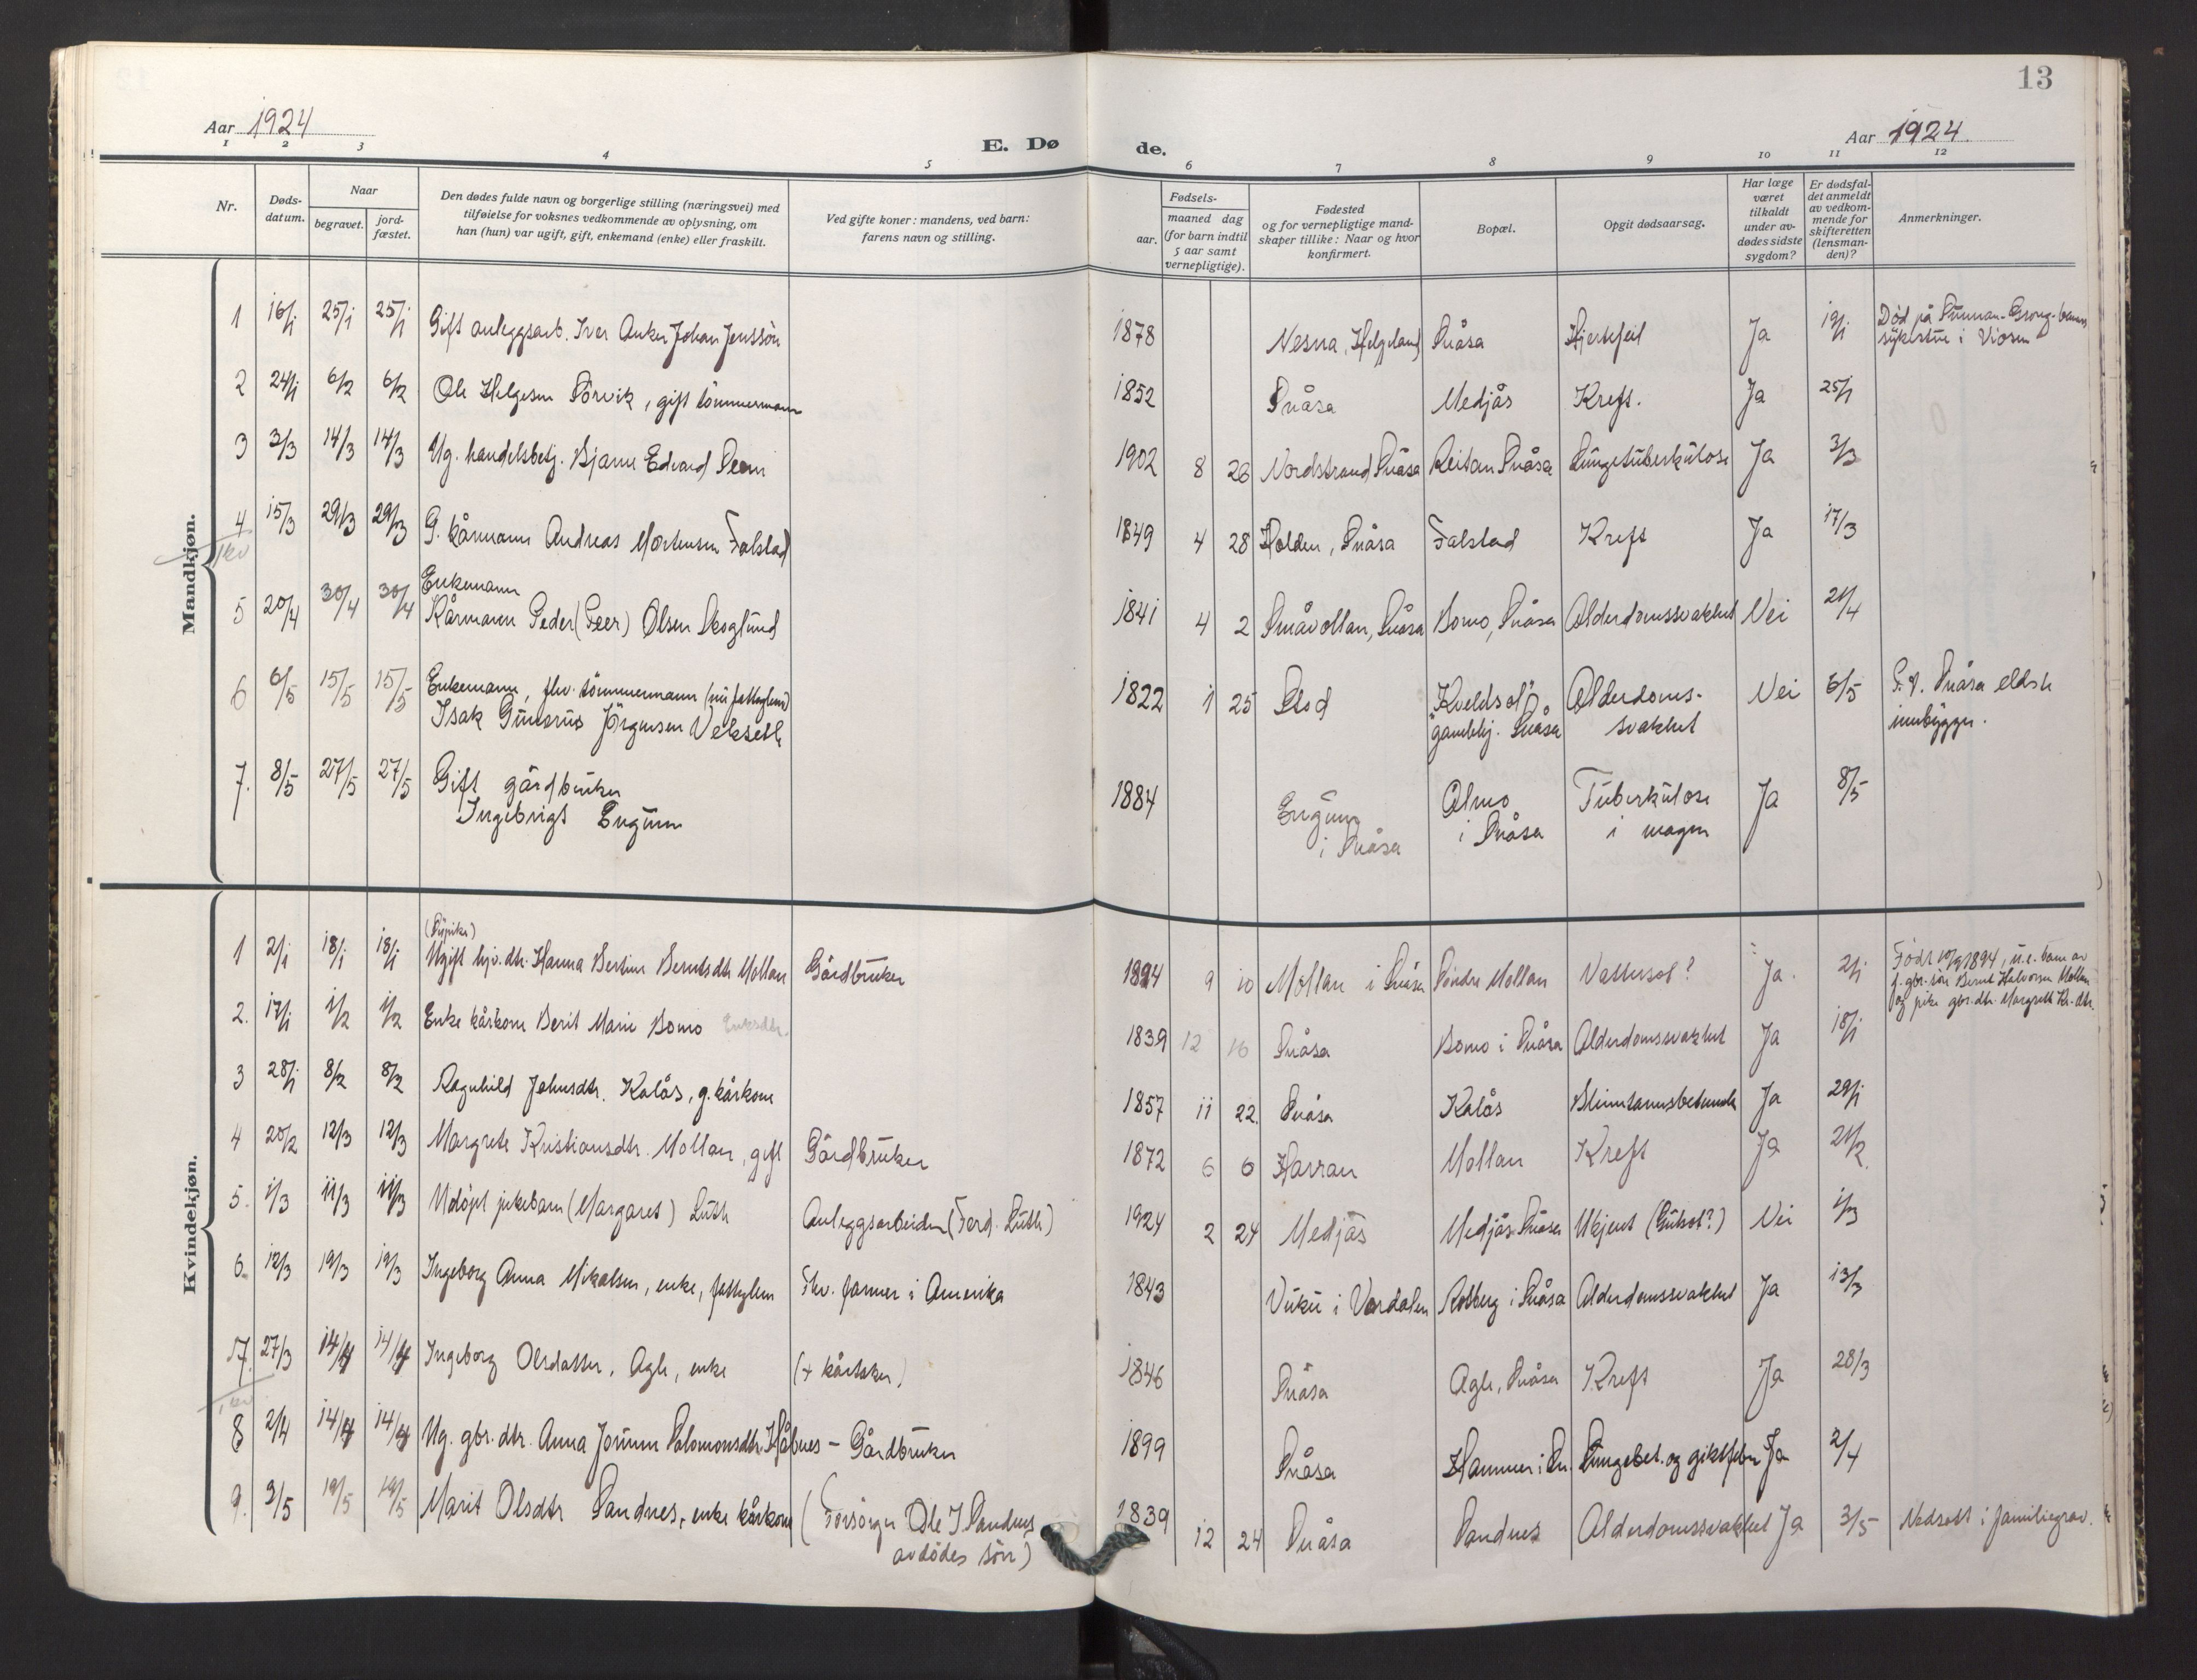 13
Aar 1924
E. Dø de.
Aar 1924.
1 2 3 4 5 6 7 8 9 10 11 12
Nr.
Døds-
datum.
Naar
begravet.
jord-
fæstet.
Den dødes fulde navn og borgerlige stilling (næringsvei) med
tilføielse for voksnes vedkommende av oplysning, om
han (hun) var ugift, gift, enkemand (enke) eller fraskilt.
Ved gifte koner: mandens, ved barn:
farens navn og stilling.
Fødsels-
aar.
maaned dag
(for barn indtil
5 aar samt
vernepligtige).
Fødested
og for vernepligtige mand-
skaper tillike: Naar og hvor
konfirmert.
Bopæl.
Opgit dødsaarsag.
Har læge
været
tilkaldt
under av-
dødes sidste
sygdom?
Er dødsfal-
det anmeldt
av vedkom-
mende for
skifteretten
(lensman-
den)?
Anmerkninger.
Mandkjøn.
1 16/1 25/1 25/1 Gift anleggsarb. Iver Anker Johan Jenssön 1878 Nesna, Helgeland Snåsa Hjertefeil Ja 19/1 Död på Sunnan-Grong-banens
sykestue i Viosen
2 24/1 6/2 6/2 Ole Helgesen Sörvik, gift tömmermann 1852 Snåsa Medjås Kreft. Ja 25/1
3 3/3 14/3 14/3 Ug. handelsbetj. Bjarne Edvard Seem 1902 8 26 Nordstrand Snåsa Reitan Snåsa Lungetuberkulose Ja 3/3
4 15/3 29/3 29/3 G. kårmann Andreas Mortensen Falstad 1849 4 28 Holden, Snåsa Falstad Kreft Ja 17/3
5 20/4 30/4 30/4 Enkemann
Kårmann Peder (Peer) Olsen Skoglund 1841 4 2 Småvollan, Snåsa Bomo, Snåsa Alderdomssvakhet Nei 21/4
6 6/5 15/5 15/5 Enkemann, fhv. tömmermann (nu fattiglem)
Isak Gunerius Jörgensen Vekseth 1822 1 25 Stod "Kveldsol"
gamlehj. Snåsa Alderdoms-
svakhet Nei 6/5 P.t. Snåsa eldste
innbygger.
7. 8/5 27/5 27/5 Gift gårdbruker
Ingebrigt Engum 1884 Engum
i Snåsa Almo
i Snåsa Tuberkulose
i magen Ja 8/5
Kvindekjøn.
1 2/1 18/1 18/1 (Sypike)
Ugift hjv. dtr. Hanna Bertine Berntsdtr Mollan Gårdbruker 1894 9 10 Mollan i Snåsa Söndre Mollan Vattersot? Ja. 2/1 Födt 10/9 1894, u.e. barn av
f. gbr. sön Bernt Halvorsen Mollan
og pike gbr. dtr. Margrete Kr. dtr.
2. 17/1 1/2 1/2 Enke kårkone Berit Marie Bomo 1839 12 16 Snåsa Bomo i Snåsa Alderdomssvakhet Ja 18/1
3 28/1 8/2 8/2 Ragnhild Johnsdtr. Kalås, g. kårkone 1857 11 22. Snåsa Kalås Blinntarmsbetennelse Ja 29/1
4 20/2 12/3 12/3 Margrete Kristiansdtr. Mollan, gift Gårdbruker 1872 6 6 Harran Mollan Kreft Ja 21/2
5. 1/3 11/3 11/3 Udöpt pikebarn (Margaret) Luth Anleggsarbeider (Ferd. Luth) 1924 2 24 Medjås Medjås Snåsa Ukjent (Gulsot?) Nei 1/3
6. 12/3 19/3 19/3 Ingeborg Anna Mikalsen, enke, fattiglem Fhv. farmer i Amerika 1843 Vuku i Verdalen Rotberg i Snåsa Alderdomssvakhet Ja 13/3
7. 27/3 14/4 14/4 Ingeborg Olsdatter, Agle, enke (+ kårtaker) 1846 Snåsa Agle, Snåsa Kreft Ja 28/3
8 2/4 14/4 14/4 Ug. gbr. dtr. Anna Jorunn Salomonsdtr. Håbnes - Gårdbruker 1899 Snåsa Hammer i Sn. Lungebet. og giktfeber Ja 2/4
9. 3/5 19/5 19/5 Marit Olsdtr Sandnes, enke kårkone (Forsörger Ole I Sandnes
avdödes sön) 1839 12 24 Snåsa Sandnes Alderdomssvakhet Ja 3/5 Nedsatt i familiegrav.